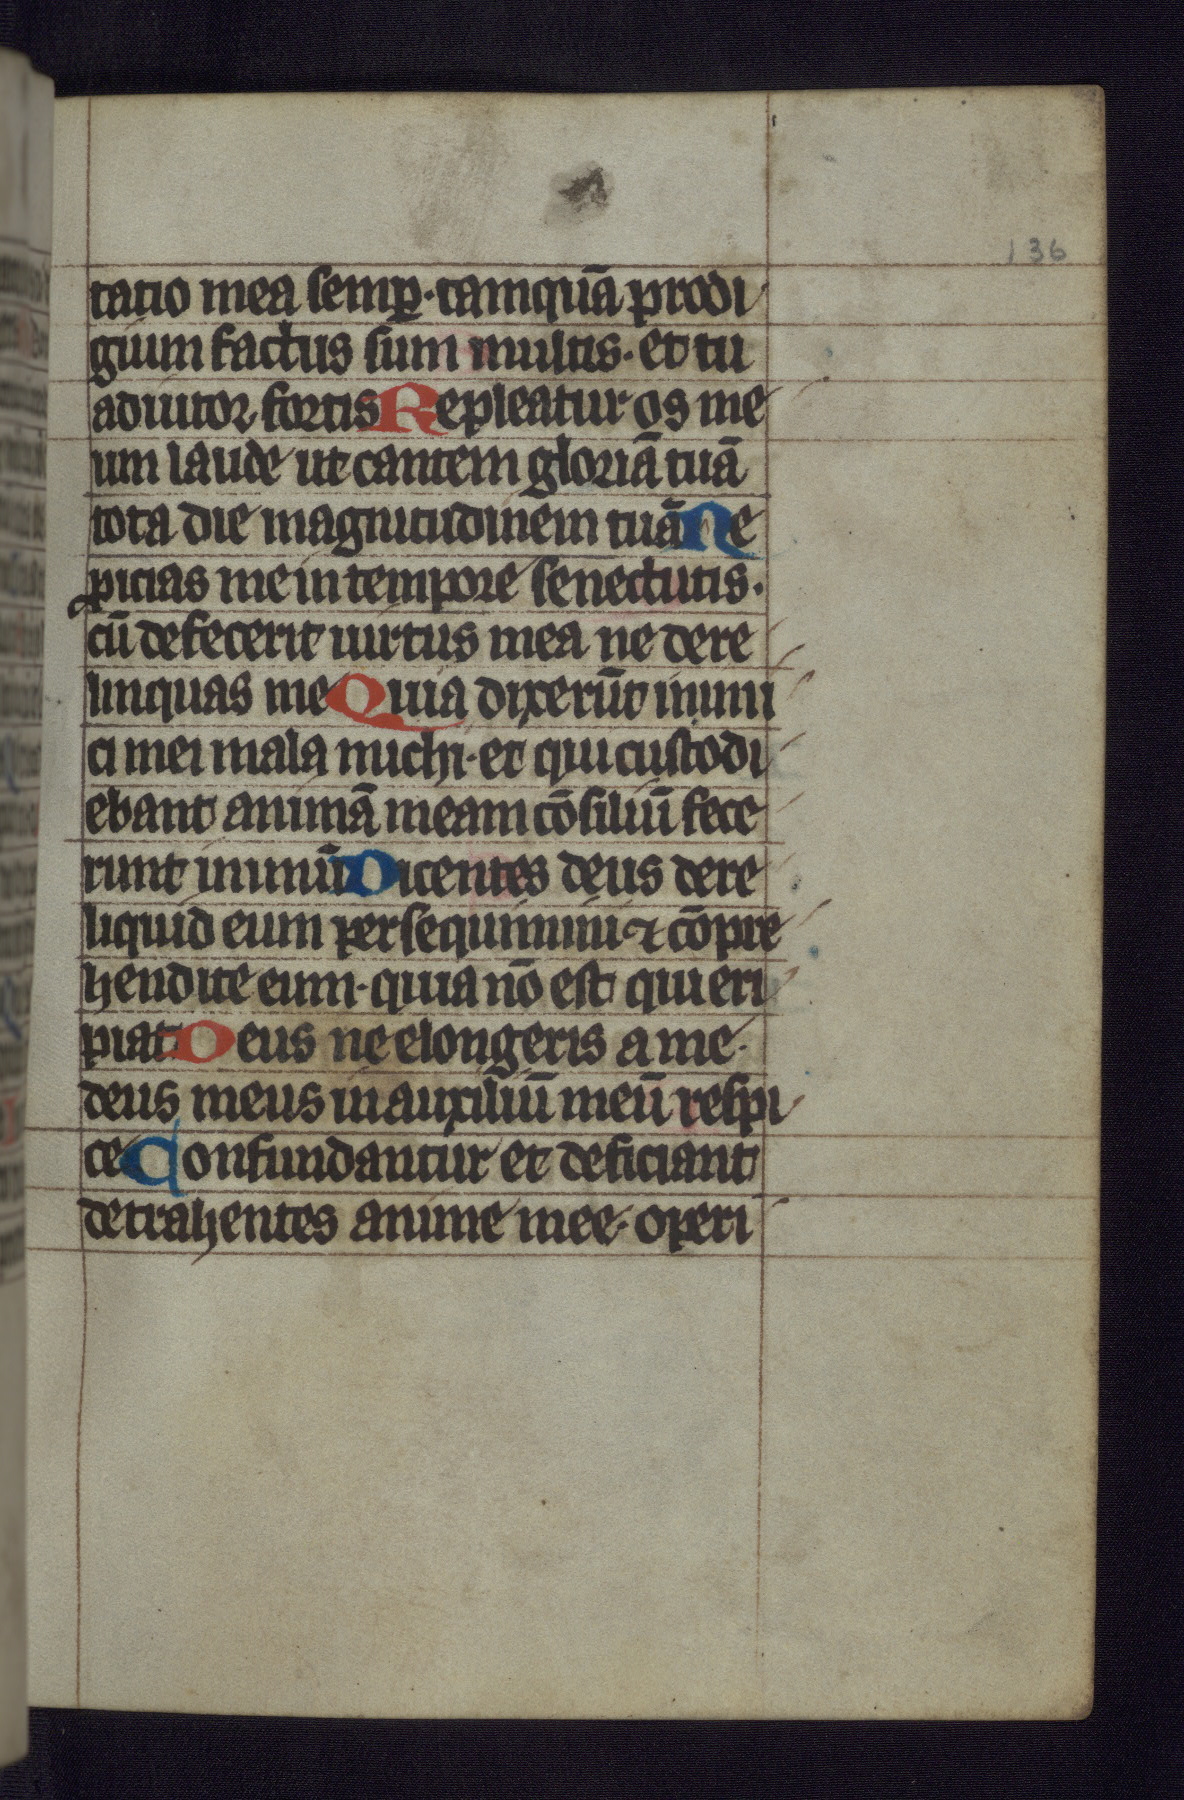 136
tatio mea semꝑ·tamquā prodi
gium factus sum multis·et tu
adiutor fortis Repleatur os me
um laude ut cantem gloriā tuā
tota die magnitudinem tuā Ne
ꝓicias me in tempore senectutis·
cū defecerit uirtus mea ne dere
linquas me Quia dixerūt inimi
ci mei mala michi·et qui custodi
ebant animā meam cōsiliū fece
runt in unū Dicentes deus dere
liquid eum persequimini ⁊ cōpre
hendite eum·quia nō est qui eri
piat Deus ne elongeris a me·
deus meus in auxiliū meū respi
ce Confundantur et deficiant
detrahentes anime mee·operi